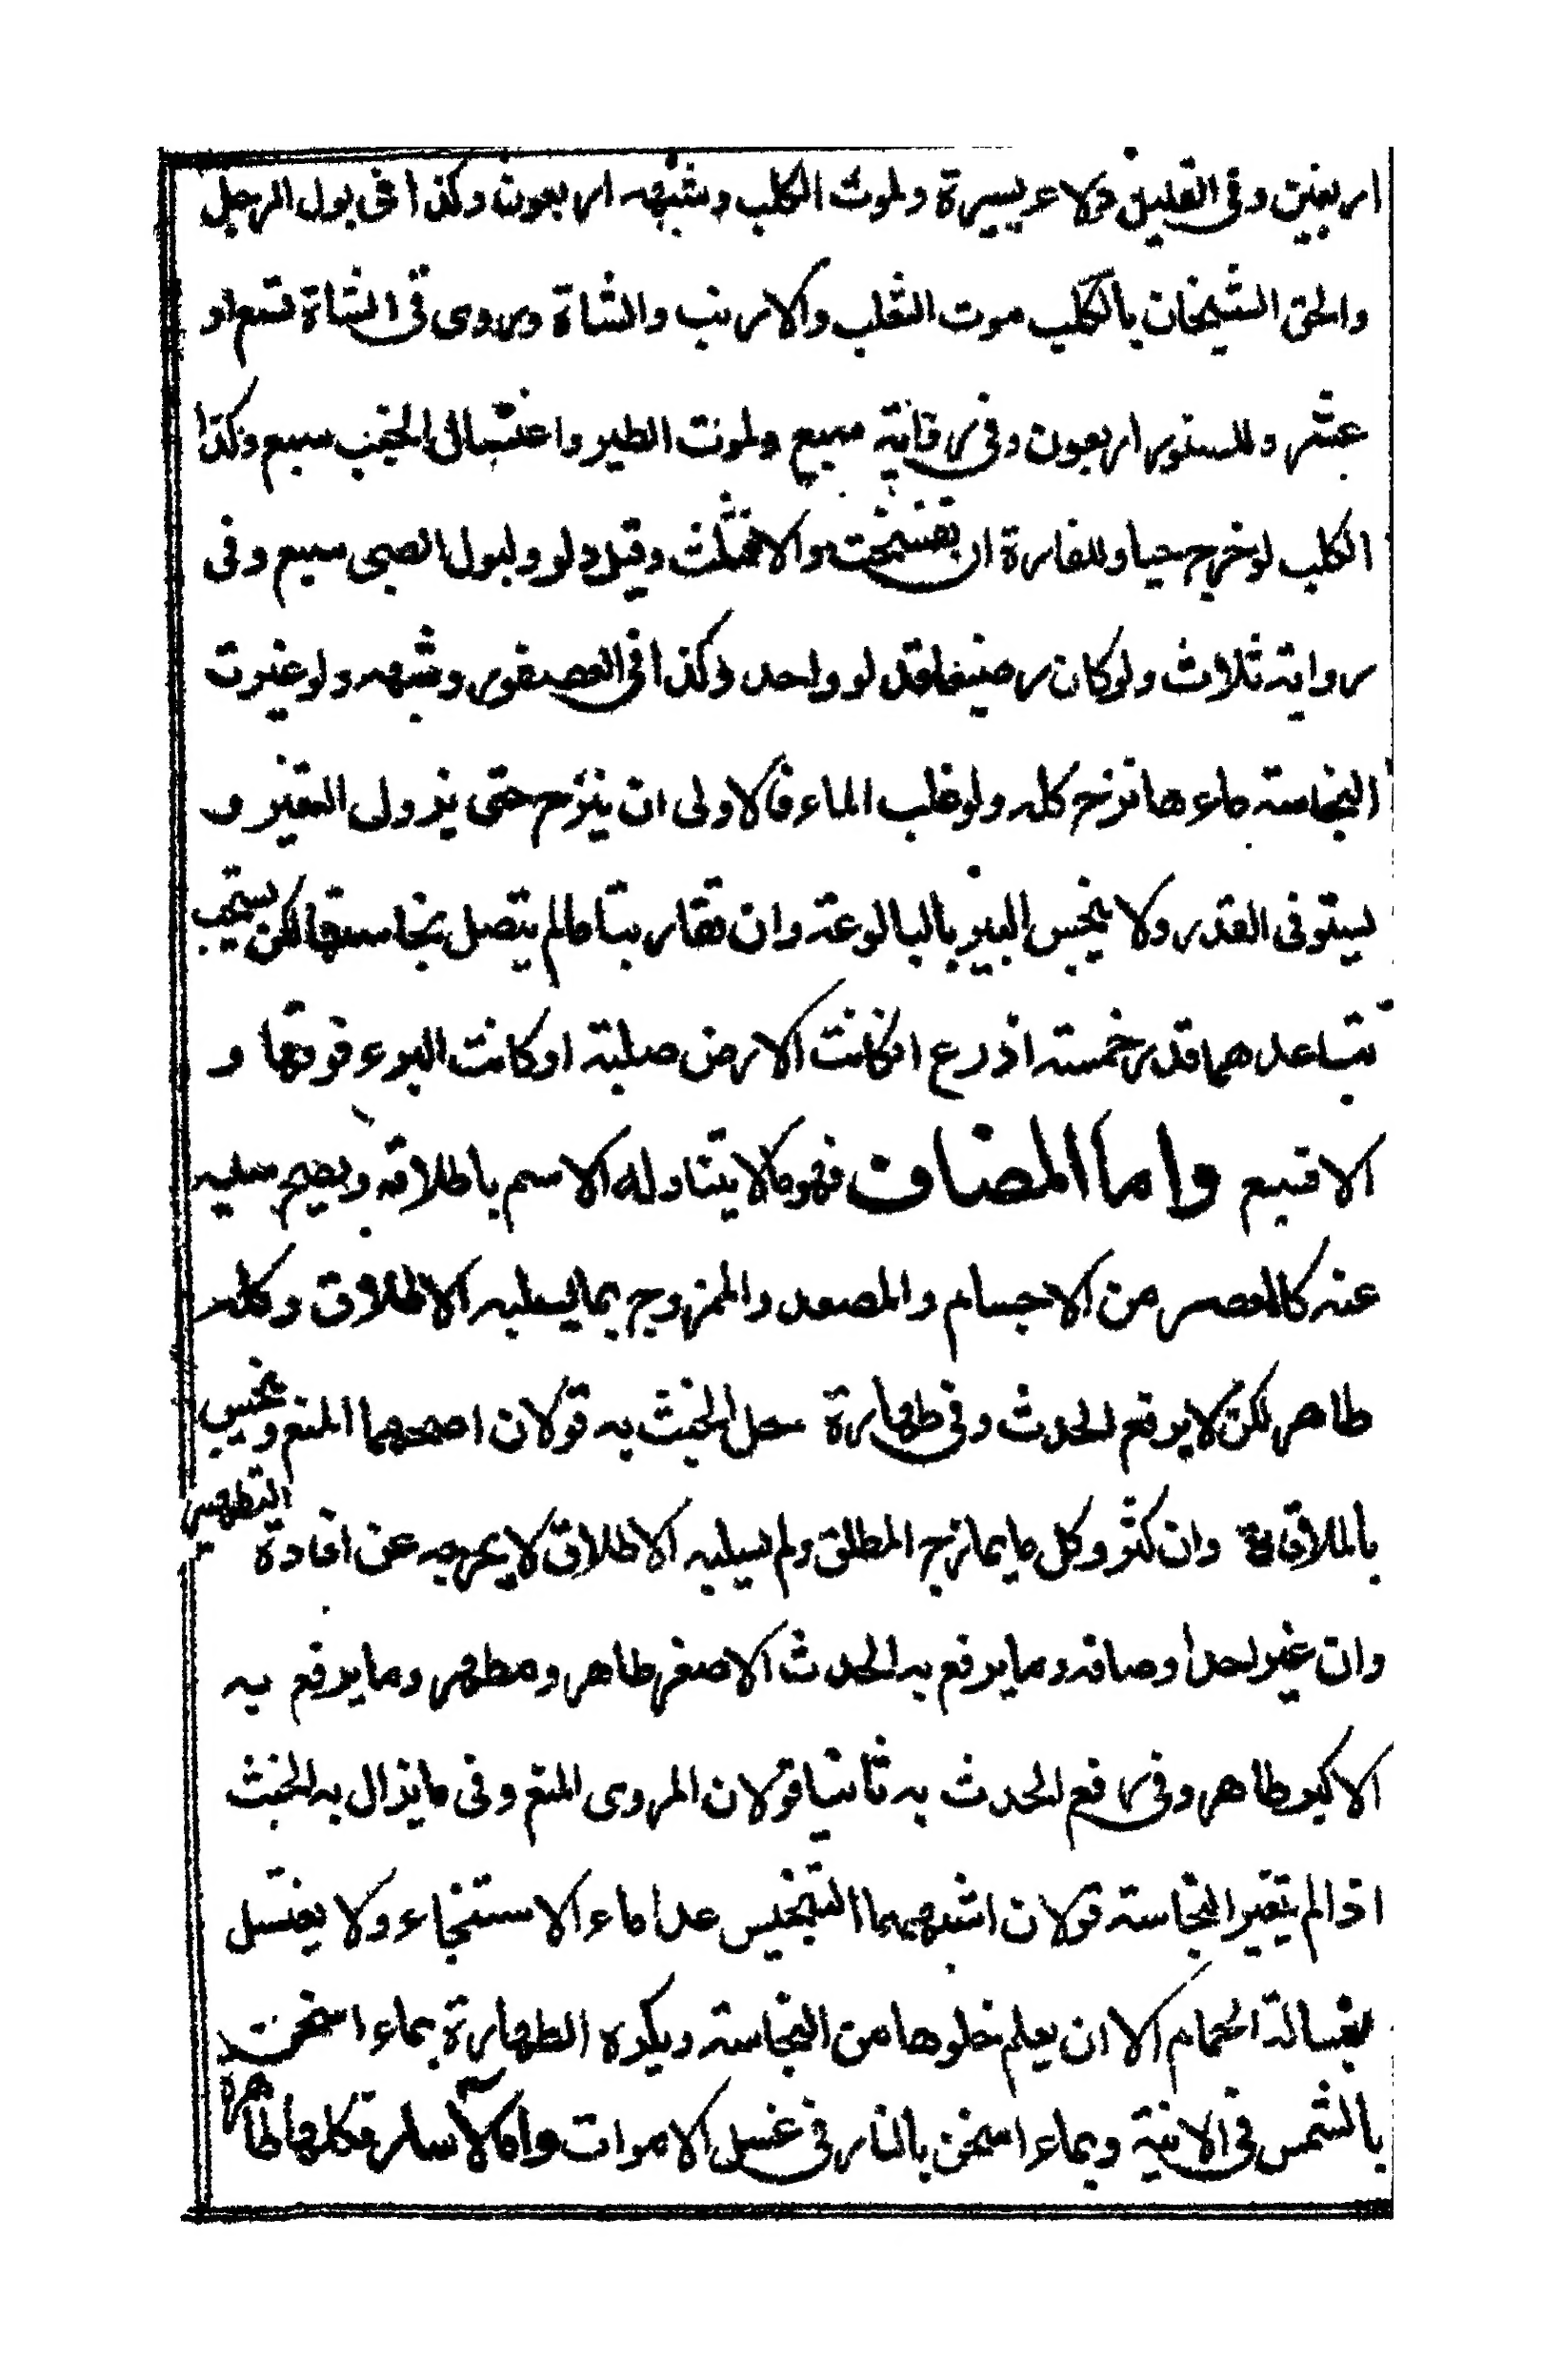 اربعين وفى القليل دلاء يسيرة ولموت الكلب وشبهه اربعون وكذا فى بول الرجل
والحق الشيخان بالكلب موت الثعلب والارنب والشاة وروى فى الشاة تسع او
عشر وللسنور اربعون وفى رواية سبع ولموت الطير واغتسال الجنب سبع وكذا
الكلب لو خرج حيا وللفارة ان تفسخت والا فثلث وقيل دلو ولبول الصبى سبع وفى
رواية ثلاث ولو كان رضيعا فدلو واحد وكذا فى العصفور وشبهه ولو غيرت
النجاسة ماءها نزح كله ولو غلب الماء فالاولى ان ينزح حتى يزول التغير و
يستوفى القدر ولا ينجس البير بالبالوعة وان تقاربتا مالم يتصل نجاستها لكن يستحب
تباعدهما قدر خمسة اذرع انكانت الارض صلبة او كانت البير فوقها و
الا فسبع واما المضاف فهو مالا يتناوله الاسم باطلاقه ويصح سلبه
عنه كالمعتصر من الاجسام والمصعد والممزوج بما يسلبه الاطلاق وكله
طاهر لكن لا يرفع الحدث وفى طهارة محل الخبث به قولان اصحهما المنع وينجس
بالملاقاة وان كثر وكل ما يمازج المطلق ولم يسلبه الاطلاق لا يخرجه عن افادة التطهير
وان غير احد اوصافه وما يرفع به الحدث الاصغر طاهر ومطهر وما يرفع به
الاكبر طاهر وفى رفع الحدث به ثانيا قولان المروى المنع وفى ما يزال به الخبث
اذا لم يتغير النجاسة قولان اشبههما التنجيس عدا ماء الاستنجاء ولا يغتسل
بغسالة الحمام الا ان يعلم خلوها من النجاسة ويكره الطهارة بماء اسخن
بالشمس فى الانية وبماء اسخن بالنار فى غسل الاموات واما الآسار فكلها طاهرة